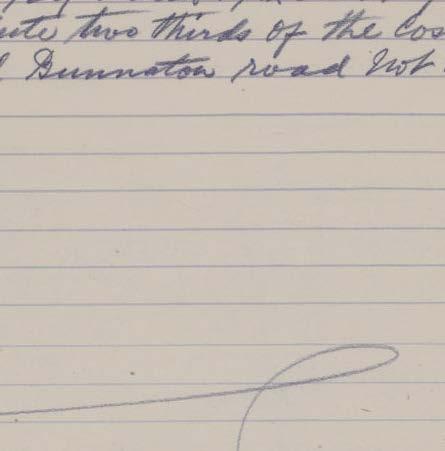 ute two thirds of the Cos
Bunnaton road Not